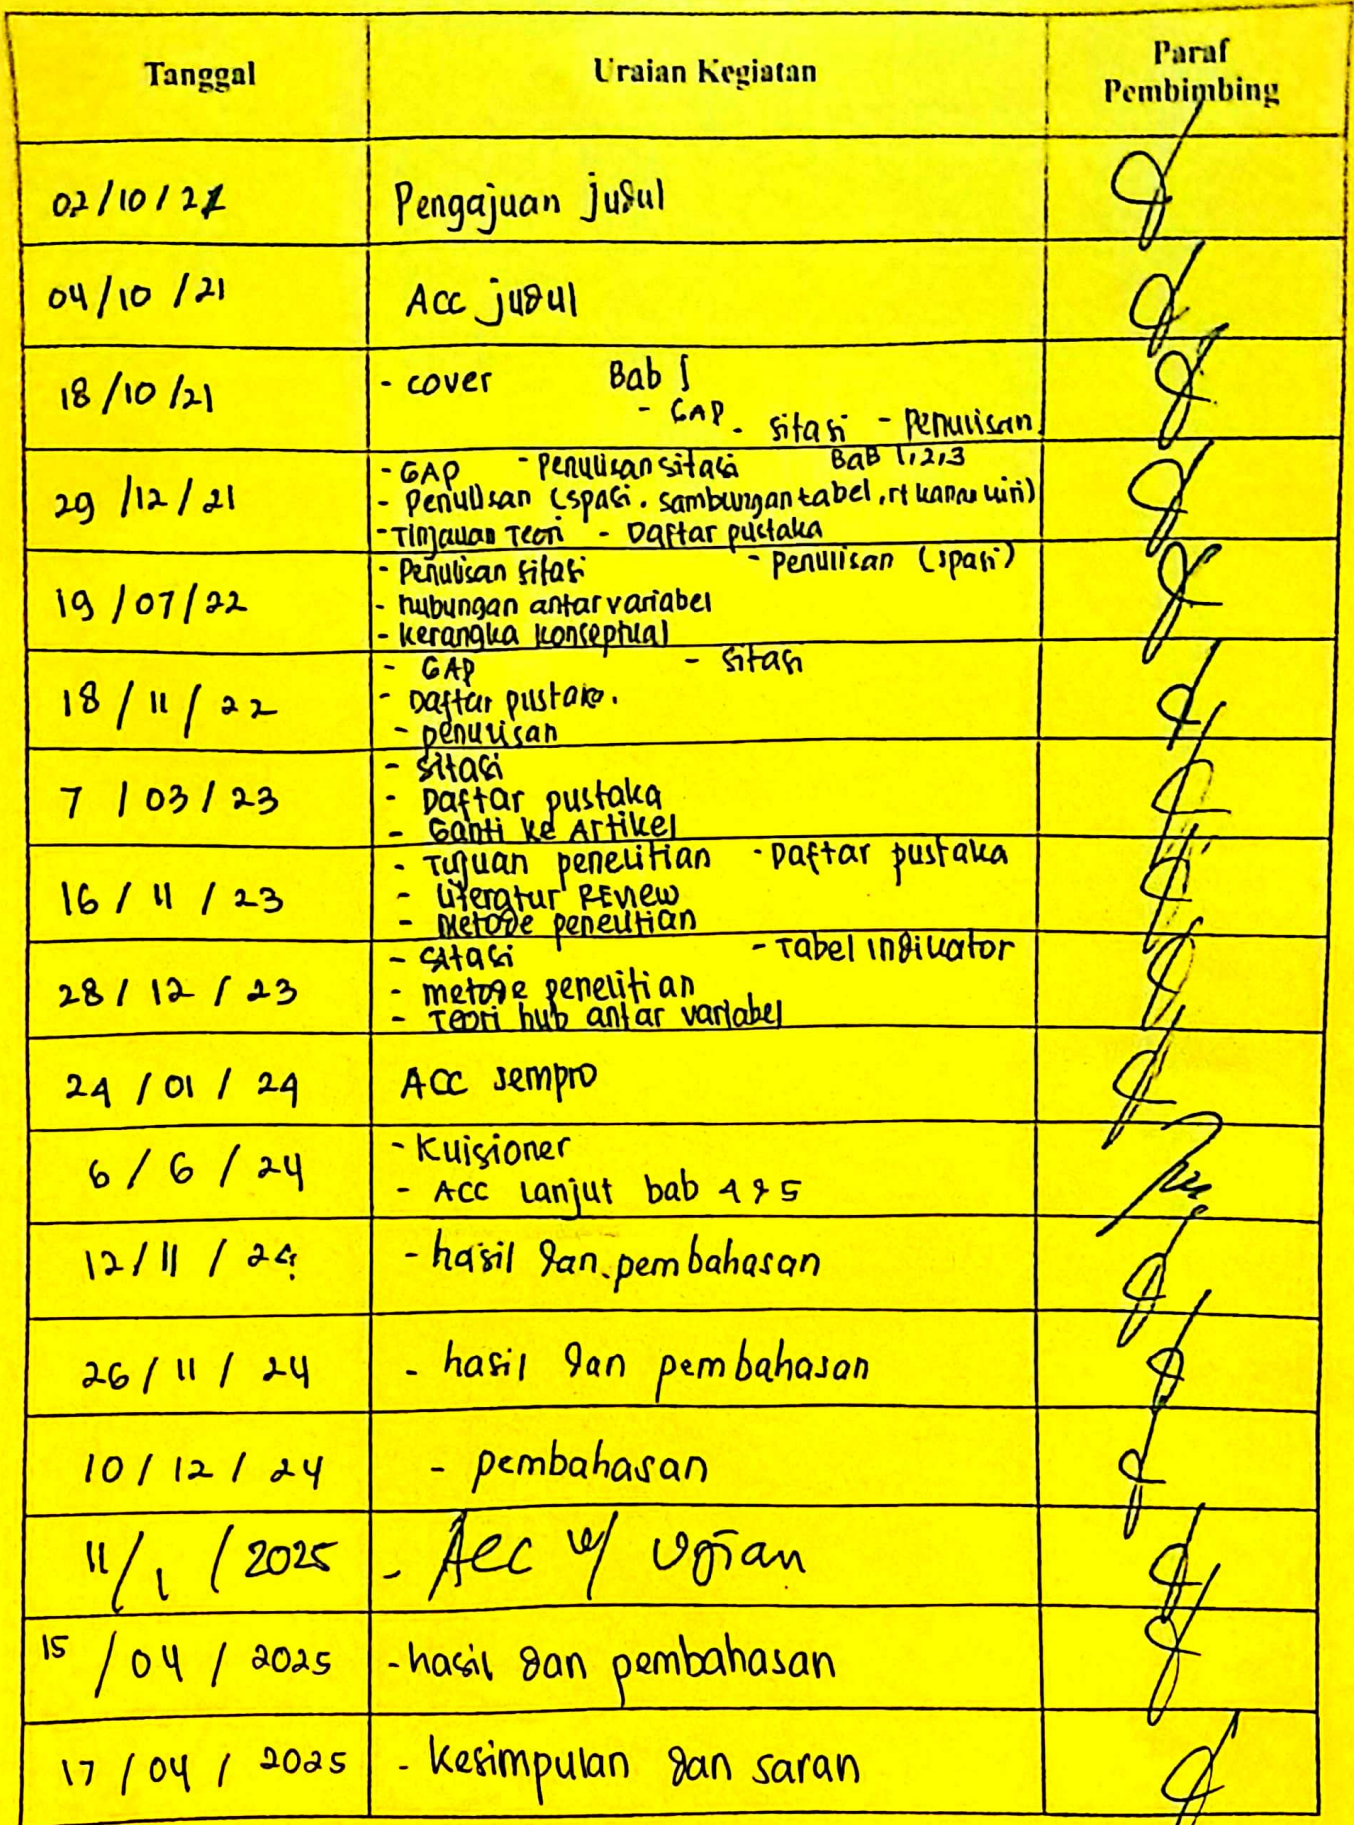 Tanggal Uraian Kegiatan Paraf Pembimbing
02/10/21 Pengajuan judul
04/10/21 Acc judul
18/10/21 - cover Bab I
- GAP - sitasi - Penulisan
29/12/21 - GAP - Penulisan sitasi BaB 1,2,3
- Penulisan (spasi, sambungan tabel, rt kanan kiri)
- Tinjauan Teori - Daftar pustaka
19/07/22 - Penulisan sitasi - Penulisan (spasi)
- hubungan antar variabel
- kerangka konseptual
18/11/22 - GAP - sitasi
- Daftar pustaka.
- penulisan
7/03/23 - sitasi
- Daftar pustaka
- Ganti ke Artikel
16/11/23 - Tujuan penelitian - Daftar pustaka
- literatur REview
- Metode penelitian
28/12/23 - sitasi - Tabel indikator
- metode penelitian
- Teori hub antar variabel
24/01/24 ACC sempro
6/6/24 - Kuisioner
- ACC Lanjut bab 4 & 5
12/11/24 - hasil dan pembahasan
26/11/24 - hasil dan pembahasan
10/12/24 - pembahasan
11/1/2025 - Acc u/ Ujian
15/04/2025 - hasil dan pembahasan
17/04/2025 - Kesimpulan dan saran